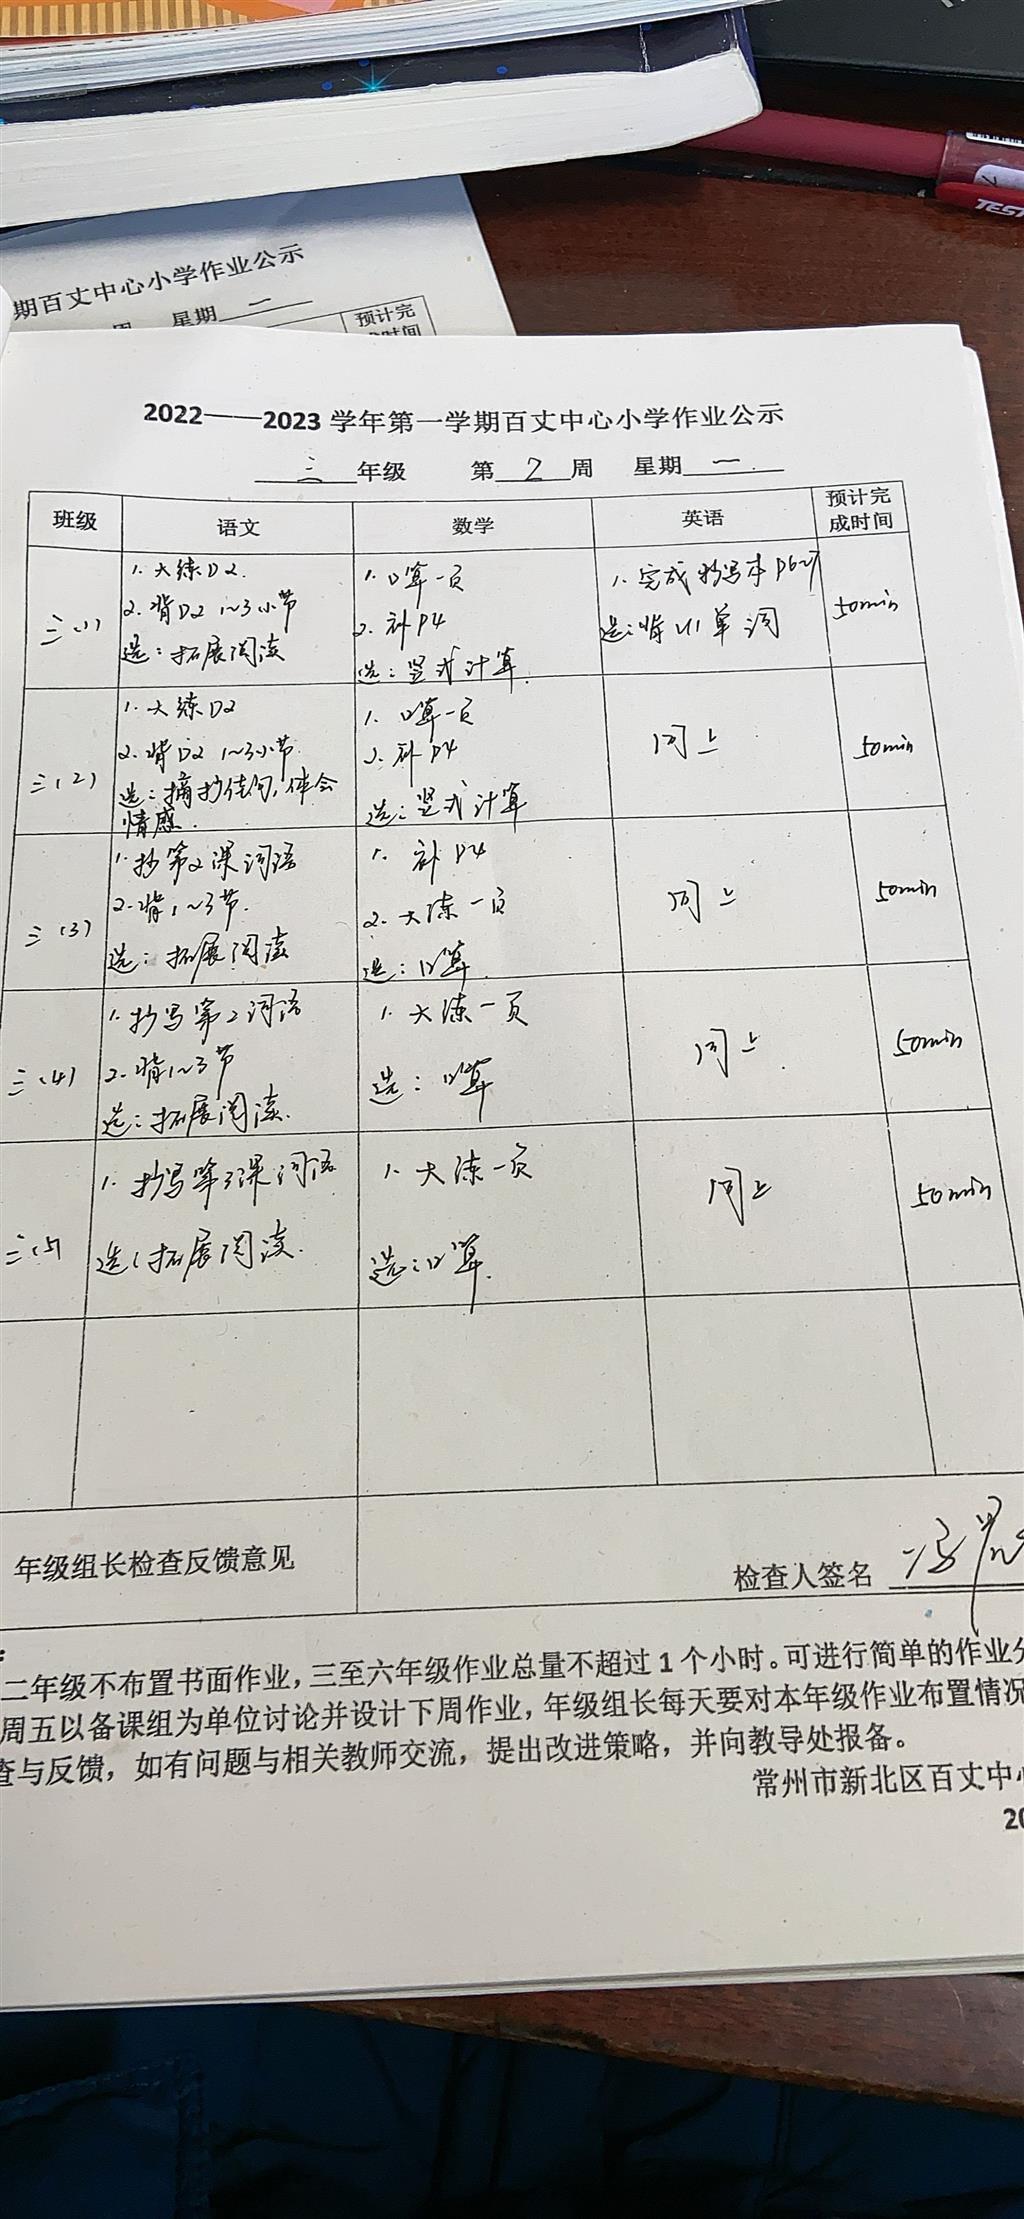 期百丈中心小学作业公示
星期 二
预计完
TEST
2022——2023 学年第一学期百丈中心小学作业公示
三 年级 第 2 周 星期 一
班级 语文 数学 英语 预计完
成时间
三(1)
1. 大练D2.
2. 背D2 1~3小节
选：拓展阅读
1. 口算一页
2. 补P4
选：竖式计算.
1. 完成抄写本P6~7
选：背U1单词
50min
三(2)
1. 大练D2
2. 背D2 1~3小节.
选：摘抄佳句，体会
情感.
1. 口算一页
2. 补P4
选：竖式计算
同上
50min
三(3)
1. 抄第2课词语
2. 背1~3节.
选：拓展阅读
1. 补P4
2. 大练一页
选：口算.
同上
50min
三(4)
1. 抄写第2词语
2. 背1~3节
选：拓展阅读.
1. 大练一页
选：口算
同上
50min
三(5)
1. 抄写第3课词语
选：拓展阅读.
1. 大练一页
选：口算.
同上
50min
年级组长检查反馈意见
检查人签名
二年级不布置书面作业，三至六年级作业总量不超过 1 个小时。可进行简单的作业分
周五以备课组为单位讨论并设计下周作业，年级组长每天要对本年级作业布置情况
查与反馈，如有问题与相关教师交流，提出改进策略，并向教导处报备。
常州市新北区百丈中心
20